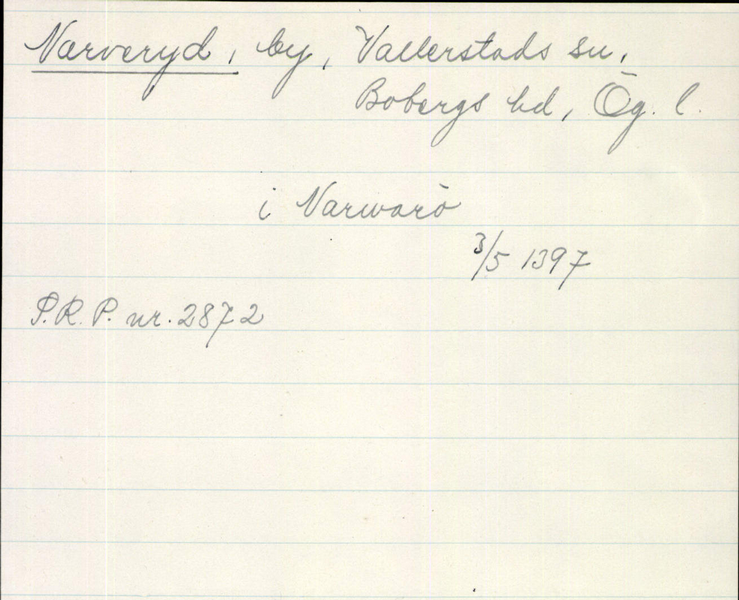 Narveryd, by, Vallerstads sn,
Bobergs hd, Ög. l.
i Narwarö
3/5 1397
P.R.P. nr. 2872